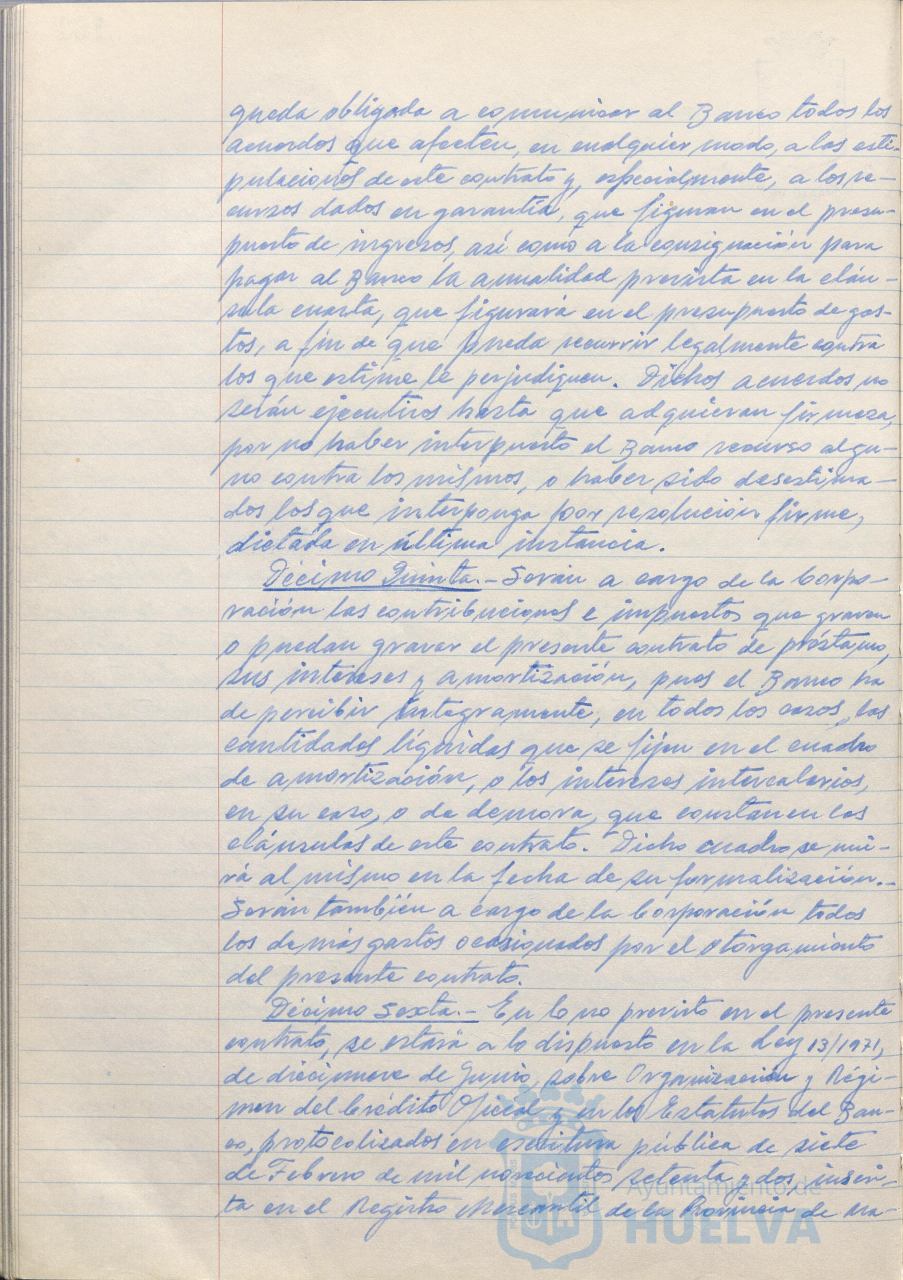 queda obligada a comunicar al Banco todos los
acuerdos que afecten, en cualquier modo, a las esti-
pulaciones de este contrato y, especialmente, a los re-
cursos dados en garantía, que figuran en el presu-
puesto de ingresos, así como a la consignación para
pagar al Banco la anualidad prevista en la cláu-
sula cuarta, que figurará en el presupuesto de gas-
tos, a fin de que pueda recurrir legalmente contra
los que estime le perjudiquen. Dichos acuerdos no
serán ejecutivos hasta que adquieran firmeza,
por no haber interpuesto el Banco recurso algu-
no contra los mismos, o haber sido desestima-
dos los que interponga por resolución firme,
dictada en última instancia.
Décimo Quinta.- Serán a cargo de la Corpo-
ración las contribuciones e impuestos que graven
o puedan gravar el presente contrato de préstamo,
sus intereses y amortización, pues el Banco ha
de percibir íntegramente, en todos los casos, las
cantidades líquidas que se fijen en el cuadro
de amortización, o los intereses intercalarios,
en su caso, o de demora, que constan en las
cláusulas de este contrato. Dicho cuadro se uni-
rá al mismo en la fecha de su formalización.-
Serán también a cargo de la Corporación todos
los demás gastos ocasionados por el otorgamiento
del presente contrato.
Décimo Sexta.- En lo no previsto en el presente
contrato, se estará a lo dispuesto en la Ley 13/1971,
de diecinueve de Junio, sobre Organización y Régi-
men del Crédito Oficial y en los Estatutos del Ban-
co, protocolizados en escritura pública de siete
de Febrero de mil novecientos setenta y dos, inscri-
ta en el Registro Mercantil de la Provincia de Ma-
Ayuntamiento de
HUELVA